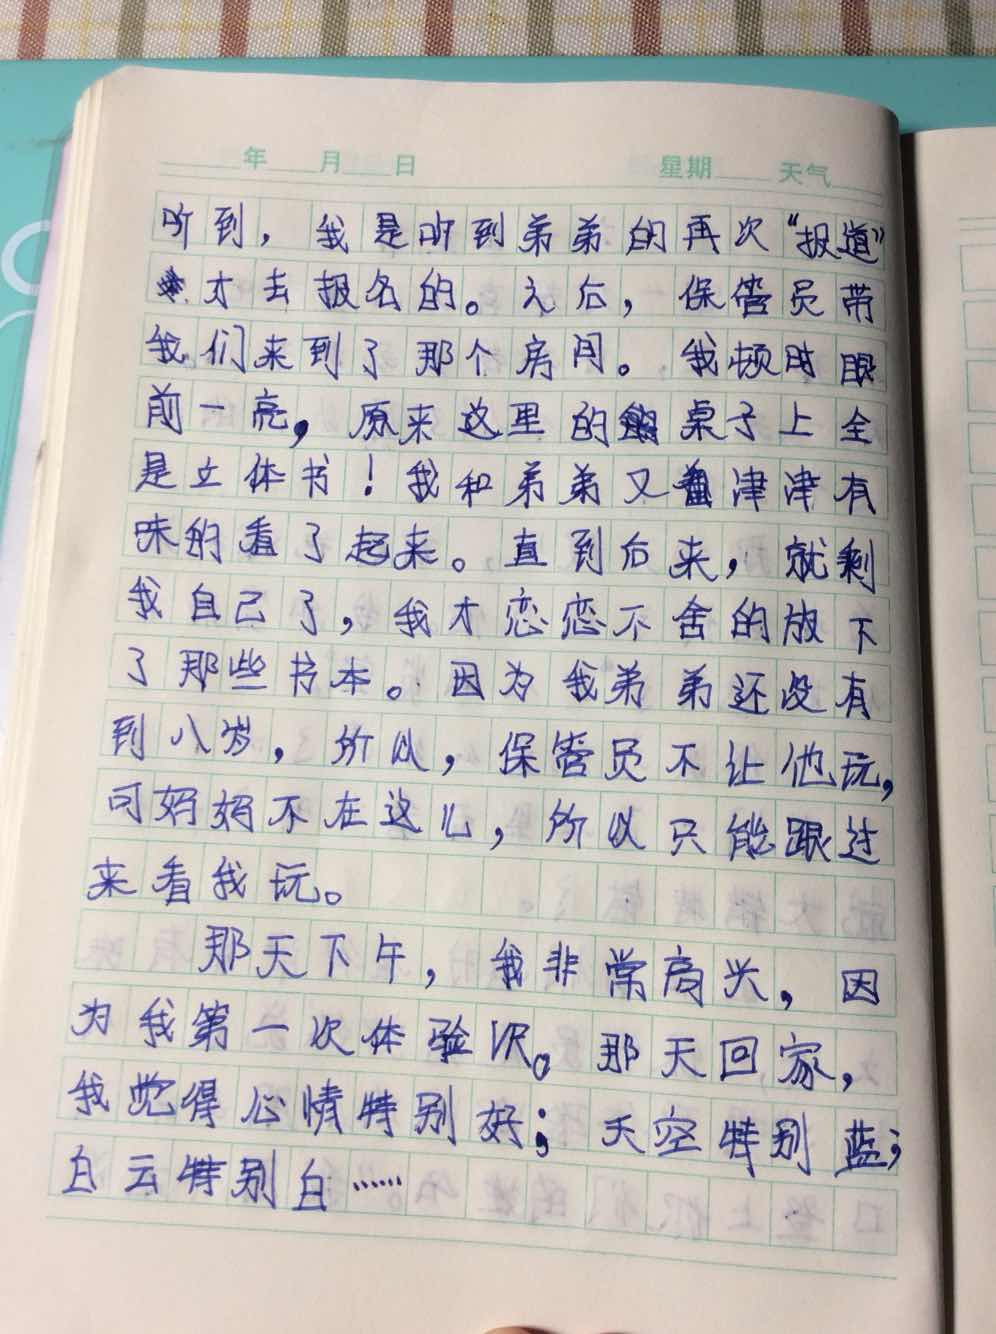 年 月 日 星期 天气
听到，我是听到弟弟的再次“报道”
才去报名的。入后，保管员带
我们来到了那个房间。我顿时眼
前一亮，原来这里的桌子上全
是立体书！我和弟弟又津津有
味的看了起来。直到后来，就剩
我自己了，我才恋恋不舍的放下
了那些书本。因为我弟弟还没有
到八岁，所以，保管员不让他玩，
可妈妈不在这儿，所以只能跟过
来看我玩。
那天下午，我非常高兴，因
为我第一次体验VR。那天回家，
我觉得心情特别好；天空特别蓝；
白云特别白……